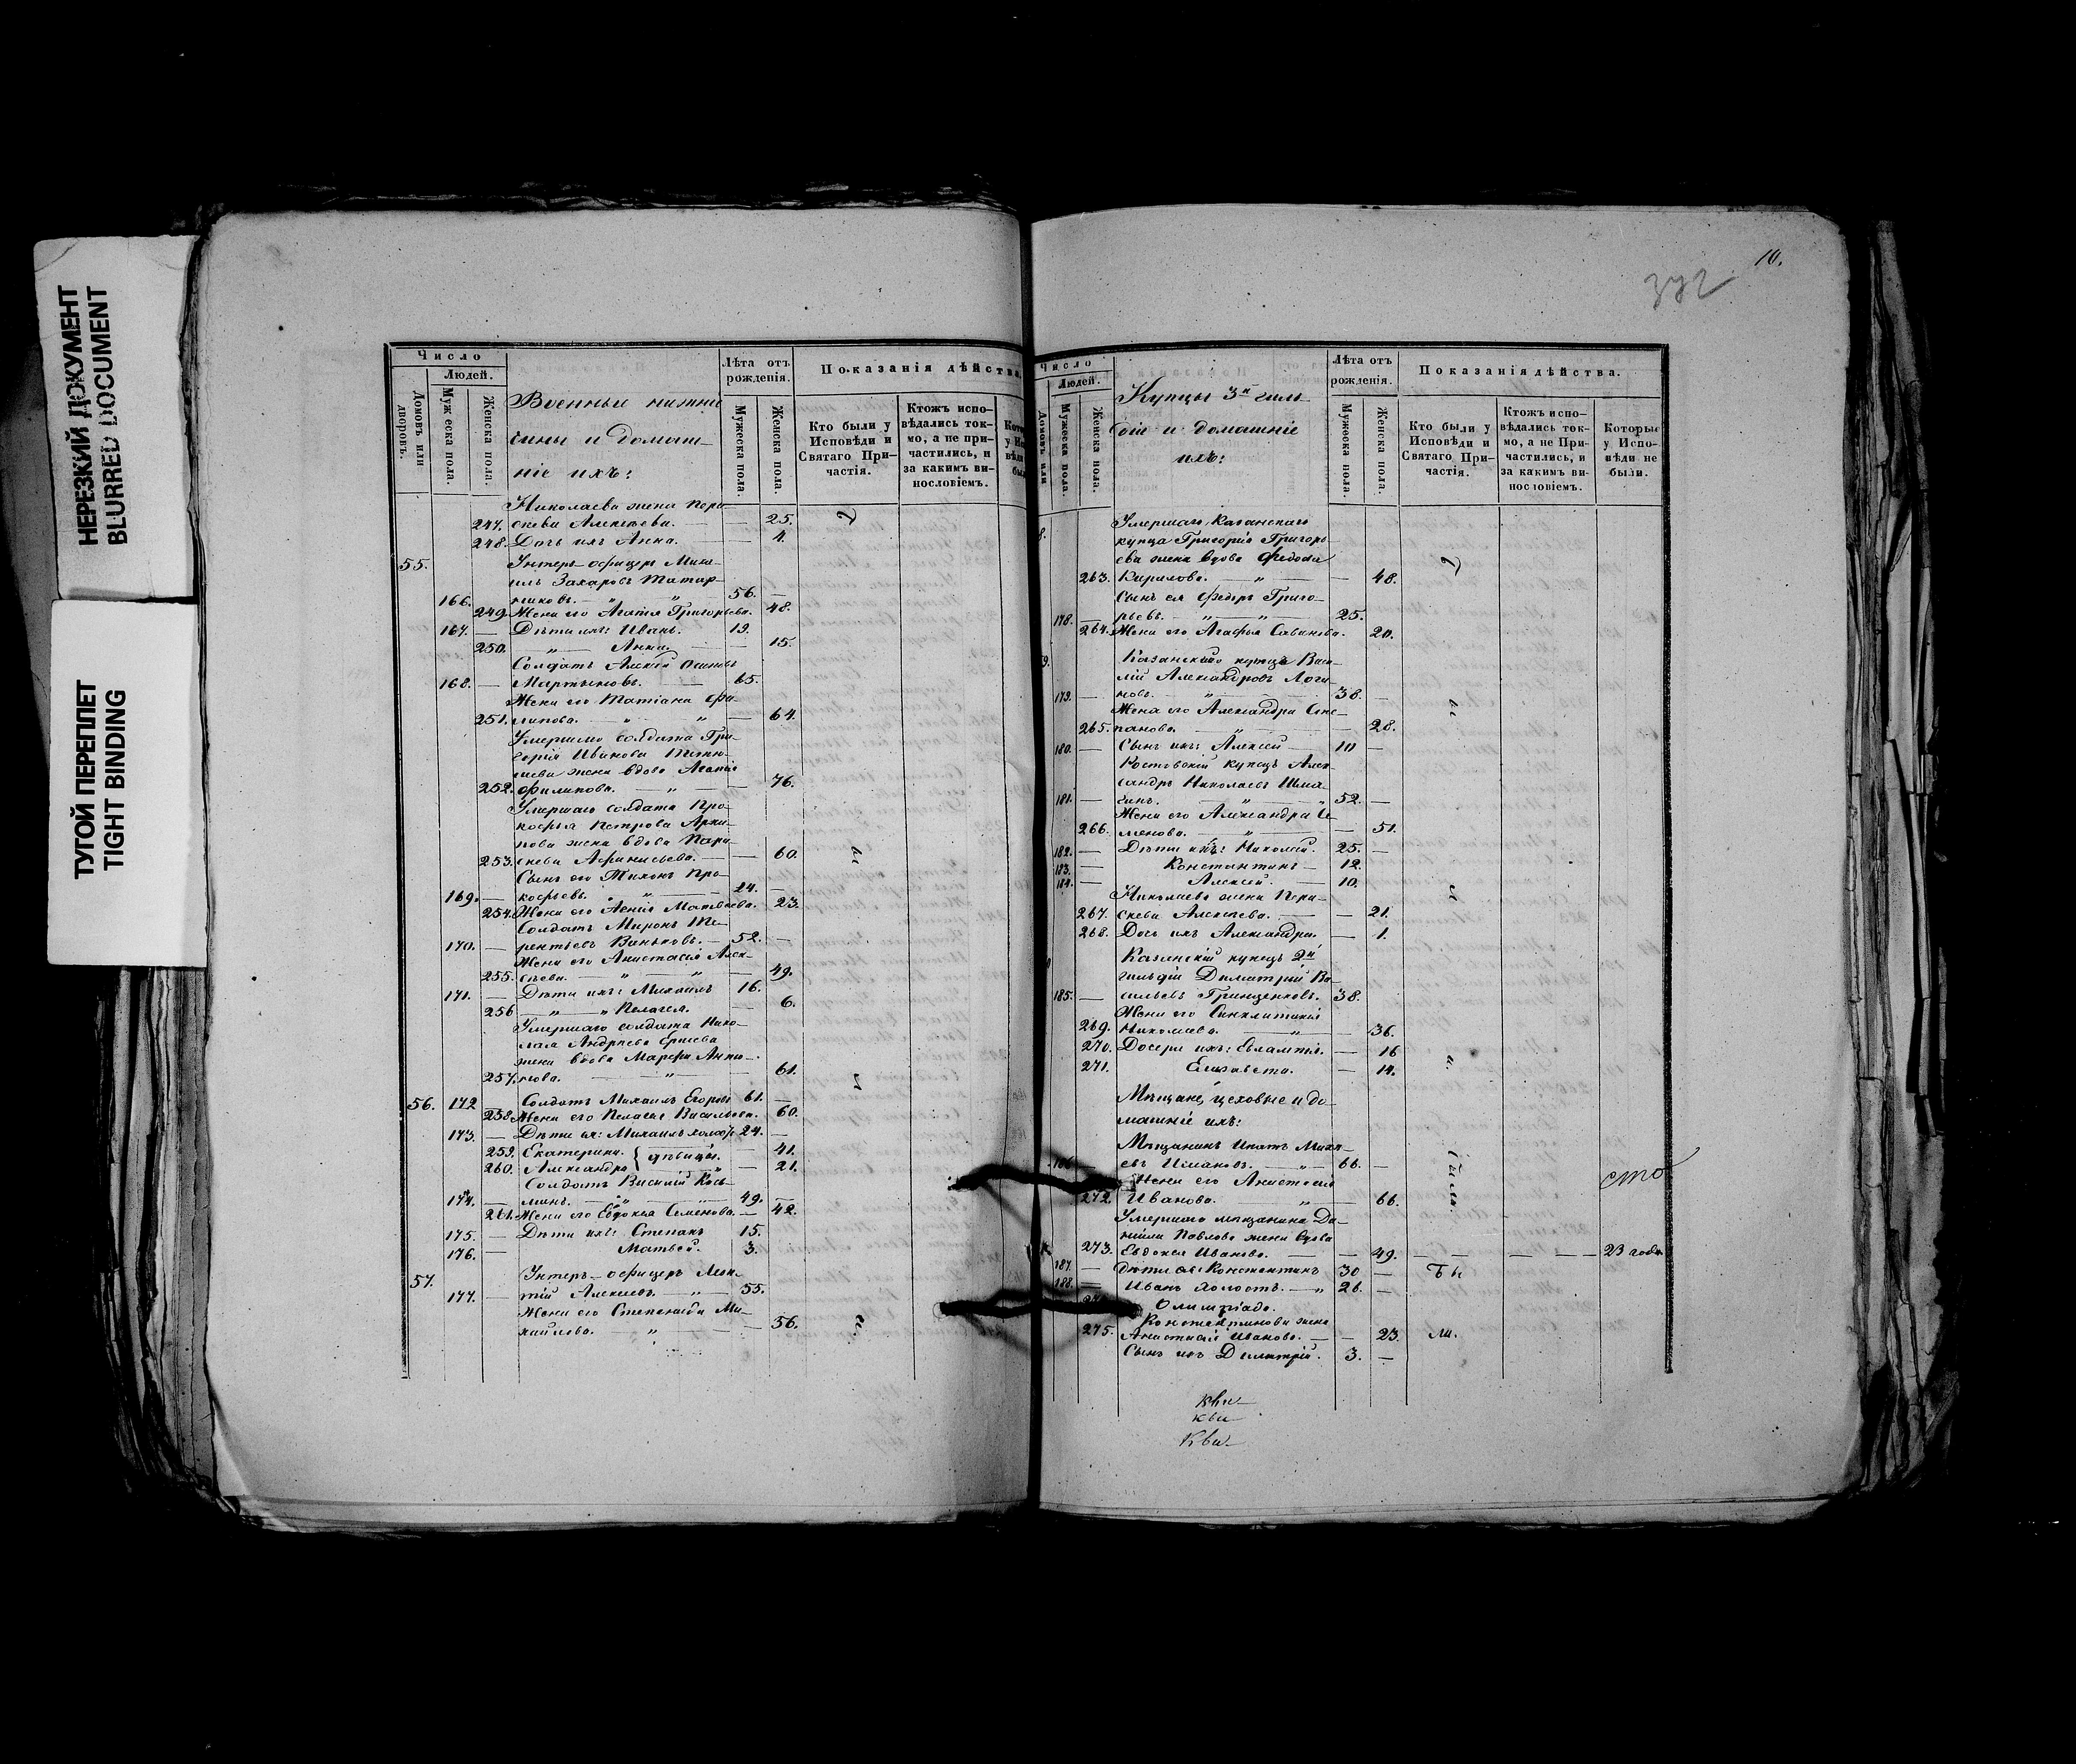 НЕРЕЗКИЙ ДОКУМЕНТ
BLURRED DOCUMENT
ТУГОЙ ПЕРЕПЛЕТ
TIGHT BINDING
Число
Людей.
Домовъ или дворовъ.
Мужеска пола.
Женска пола.
Военные нижніе
чины и домаш-
ніе ихъ:
Лѣта отъ рожденія.
Мужеска пола.
Женска пола.
Показанія дѣйства.
Кто были у Исповѣди и Святаго При-частія.
Ктожъ испо-вѣдались ток-мо, а не при-частились, и за какимъ ви-нословіемъ.
Николаева жена Пара-
247. скева Алексѣева. — 25.
248. Дочь ихъ Анна. — 4.
55. Унтеръ-офицеръ Миха-
илъ Захаровъ Татар-
166. никовъ. — " " 56. —
249. Жена его Агапія Григорьева. 48.
167. — Дѣти ихъ: Иванъ. 19.
250. " Анна. — 15.
Солдатъ Алексѣй Осиповъ
168. — Мартыновъ. — 65.
Жена его Татіана Фи-
251. липова. — " " — 64.
Умершаго солдата Гри-
горія Иванова
жена вдова Агапія
252. Филипова. — " — 76.
Умершаго солдата Про-
кофья Петрова Архи-
пова жена вдова Пара-
253. скева Афанасьева. — — 60.
Сынъ его Тихонъ Про-
169. — кофьевъ. " — 24. —
254. Жена его Матвѣева. 23.
Солдатъ Миронъ Те-
170. — рентьевъ Ваньковъ. — 52. —
Жена его Анастасія Алек-
255. сѣева. — " — " — 49.
171. — Дѣти ихъ: Михаилъ 16.
256 — " — " Пелагея. — 6.
Умершаго солдата Нико-
лая Андреева
жена вдова Марѳа
257. нова. — " — 61.
56. 172 — Солдатъ Михаилъ Егоровъ 61. —
258. Жена его Пелагея Васильева. 60.
173. — Дѣти ея: Михаилъ холостъ 24. —
259. Екатерина. } дѣвицы. — 41.
260. Александра " — 21.
Солдатъ Василій Кось-
174. — минъ. — " — 49. —
261. Жена его Евдокія Семенова. — 42.
175. — Дѣти ихъ: Степанъ 15.
176. — Матвѣй. 3.
57. Унтеръ-офицеръ Леон-
177. — тій Алексѣевъ. — " — 55.
Жена его Степанида Ми-
хайлова. — " — — 56.
10.
Число
Людей.
Домовъ или
Мужеска пола.
Женска пола.
Купцы 3й гиль-
діи и домашніе
ихъ:
Лѣта отъ рожденія.
Мужеска пола.
Женска пола.
Показанія дѣйства.
Кто были у Исповѣди и Святаго При-частія.
Ктожъ испо-вѣдались ток-мо, а не При-частились, и за какимъ ви-нословіемъ.
Которые у Испо-вѣди не были.
8. Умершаго Казанскаго
купца Григорія Григорь-
ева жена вдова Федосія
263. Кирилова. " — — 48.
Сынъ ея Федоръ Григо-
178. — рьевъ. — " — " — 25.
264. Жена его Агафья Саванова. 20.
9. Казанскаго купца Васи-
лій Александровъ Логи-
179. — новъ. — " — 38. —
Жена его Александра Сте-
265. панова. — " — 28.
180. — Сынъ ихъ: Алексѣй — 10 —
Ростовскій купецъ Алек-
сандръ Николаевъ Шма-
181. — гинъ. " — " 52. —
Жена его Александра Се-
266. менова. — " — — 51.
182. — Дѣти ихъ: Николай. 25. —
183. — Константинъ — 12.
184. — Алексѣй. — 10.
Николаева жена Пара-
267. скева Алексѣева. — — 21.
268. Дочь ихъ Александра. — 1.
Казанскій купецъ 2й
гильдіи Димитрій Ва-
185. — сильевъ Грищенковъ. 38.
Жена его Синклитикія
269. Николаева. — " — 36.
270. Дочери ихъ: Евлампія. — 16
271. Елизавета. — 14.
Мѣщане, цеховые и до-
машніе ихъ:
Мѣщанинъ Ипатъ Миха-
186 — евъ — " — 66. —
Жена его Анастасія
272. Иванова. " — 66.
Умершаго мѣщанина Да-
ніила Павлова жена вдова
273. Евдокея Иванова. — — 49. — — — — 23 года
187. — Дѣти ея: Константинъ 30 — Бы
188. — Иванъ холостъ. — " 26. —
Олимпіада.
Константинова жена
275. Анастасія Иванова. — — 23. ли.
Сынъ ихъ Димитрій. 3. —